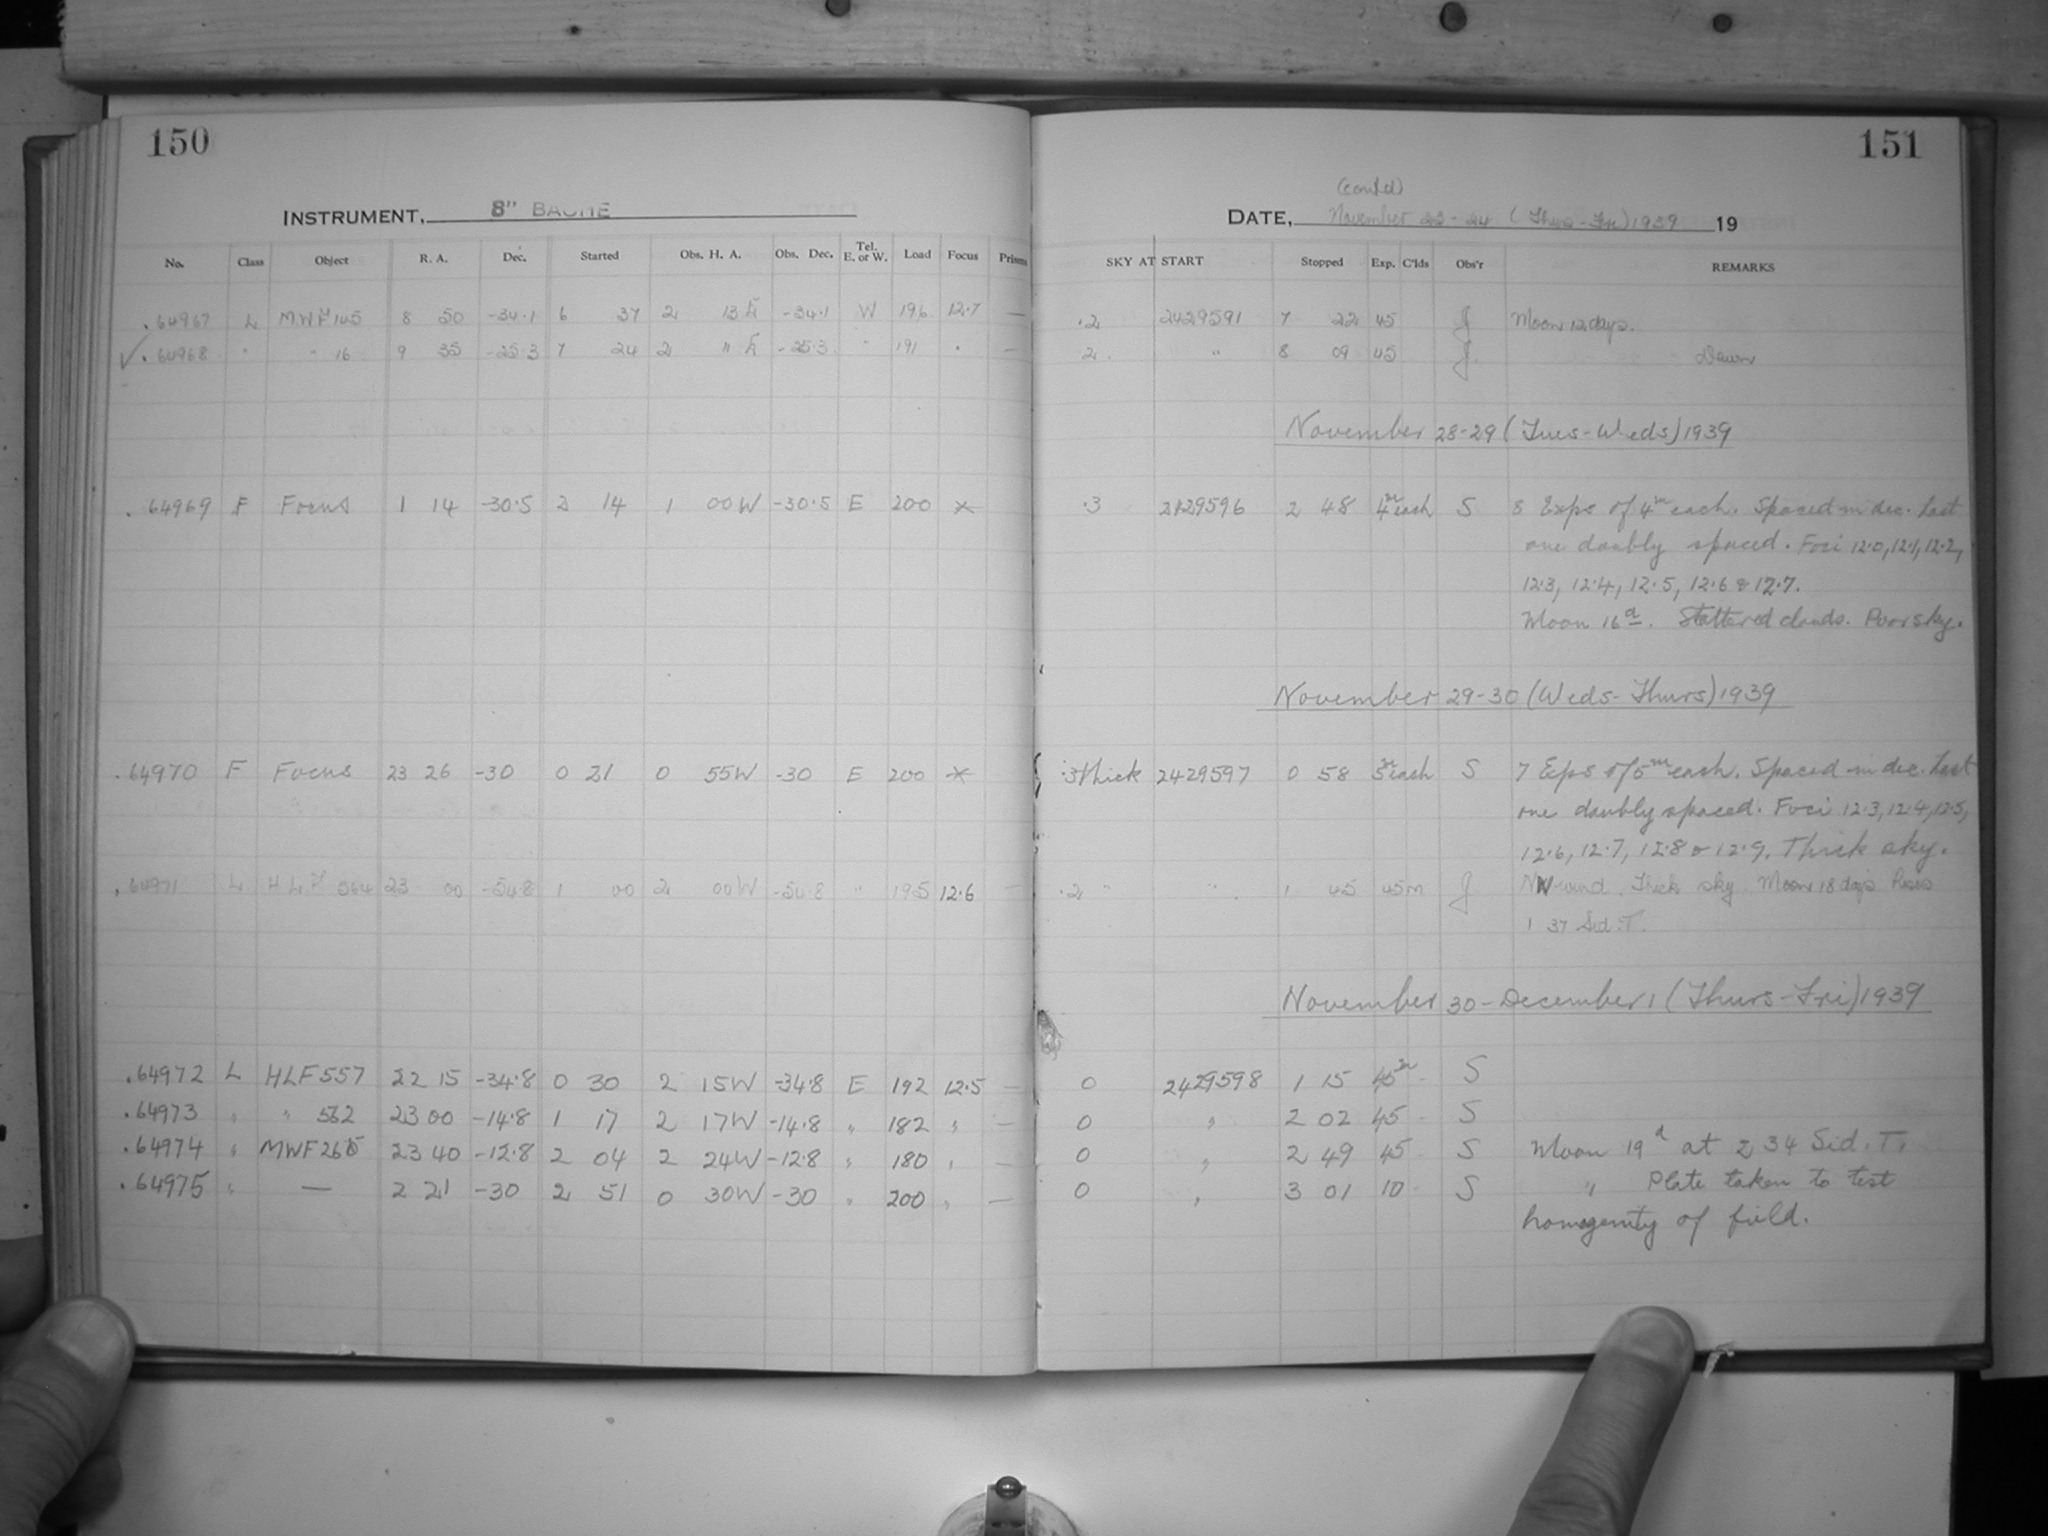 150
INSTRUMENT, 8" BACHE
No. Class Object R. A. Dec. Started Obs. H. A. Obs. Dec. Tel. E. or W. Load Focus Prisms
.64967 L MWF 145 8 50 -34.1 6 37 2 13 E -34.1 W 196 12.7 —
✓ .64968 " " 16 9 35 -25.3 7 24 2 " E -25.3 " 191 " —
.64969 F Focus 1 14 -30.5 2 14 1 00W -30.5 E 200 X
.64970 F Focus 23 26 -30 0 21 0 55W -30 E 200 X
.64971 L HLF 564 23 00 -54.8 1 00 2 00W -54.8 " 195 12.6 —
.64972 L HLF 557 22 15 -34.8 0 30 2 15W -34.8 E 192 12.5 —
.64973 " " 562 23 00 -14.8 1 17 2 17W -14.8 " 182 " —
.64974 " MWF 23 40 -12.8 2 04 2 24W -12.8 " 180 "
.64975 " — 2 21 -30 2 51 0 30W -30 " 200 " —
151
(contd)
DATE, November 23-24 (Thurs-Fri) 1939 19
SKY AT START Stopped Exp. C'lds Obs'r REMARKS
.2 2429591 7 22 45 J Moon 12 days.
2 " 8 09 45 J. Dawn
November 28-29 (Tues-Weds) 1939
.3 2429596 2 48 4m each S 8 Exps of 4m each. Spaced in dec. Last
one doubly spaced. Foci 12.0, 12.1, 12.2,
12.3, 12.4, 12.5, 12.6 & 12.7.
Moon 16d. Scattered clouds. Poor sky.
November 29-30 (Weds-Thurs) 1939
.3 thick 2429597 0 58 5m each S 7 Exps of 5m each. Spaced in dec. Last
one doubly spaced. Foci 12.3, 12.4, 12.5,
12.6, 12.7, 12.8 & 12.9. Thick sky.
.2 " " 1 45 45m J NW wind. Thick sky. Moon 18 days Rises
1 37 Sid. T.
November 30-December 1 (Thurs-Fri) 1939
0 2429598 1 15 45m S
0 " 2 02 45 S
0 " 2 49 45 S Moon 19d at 2 34 Sid. T.
0 " 3 01 10 S " Plate taken to test
homogenity of field.